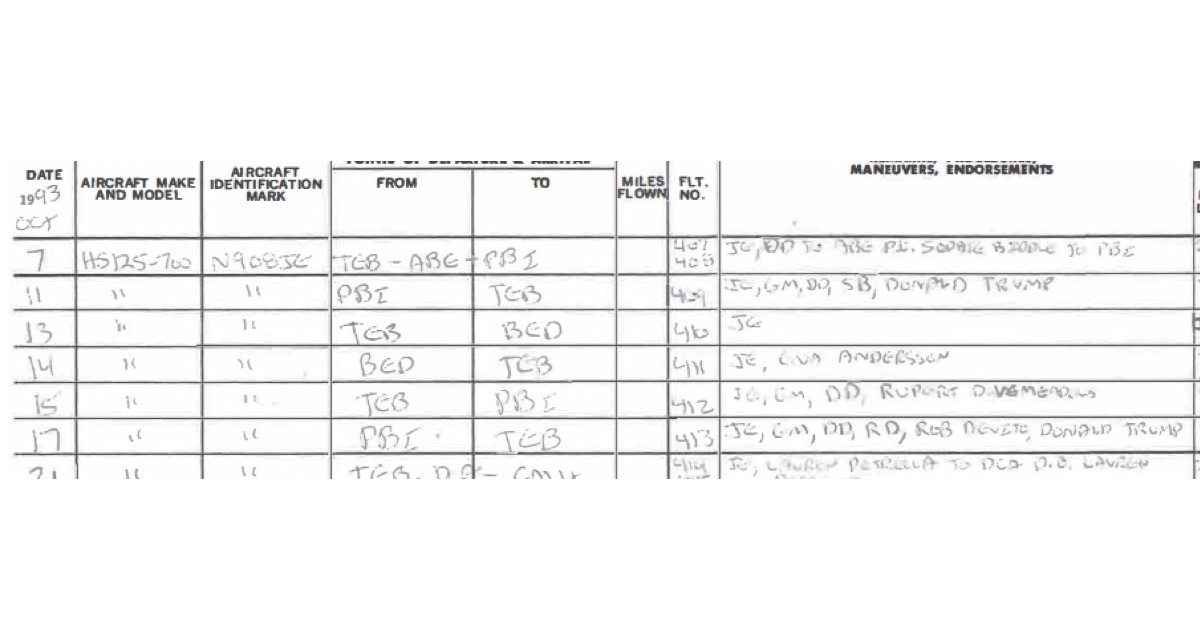 POINTS OF DEPARTURE & ARRIVAL
DATE AIRCRAFT MAKE AND MODEL AIRCRAFT IDENTIFICATION MARK FROM TO MILES FLOWN FLT. NO. MANEUVERS, ENDORSEMENTS
1993
OCT
7 HS125-700 N908JE TEB - ABE - PBI 407 408 JE, DD TO ABE TO PBI
11 " " PBI TEB 409 JE, GM, DD, SB, DONALD TRUMP
13 " " TEB BED 410 JE
14 " " BED TEB 411 JE, EVA ANDERSSON
15 " " TEB PBI 412 JE, GM, DD, RUPORT
17 " " PBI TEB 413 JE, GM, DD, RD, ROB DEVITO, DONALD TRUMP
21 " " TEB 414 JE, LAUREN PETRELLA TO LAUREN